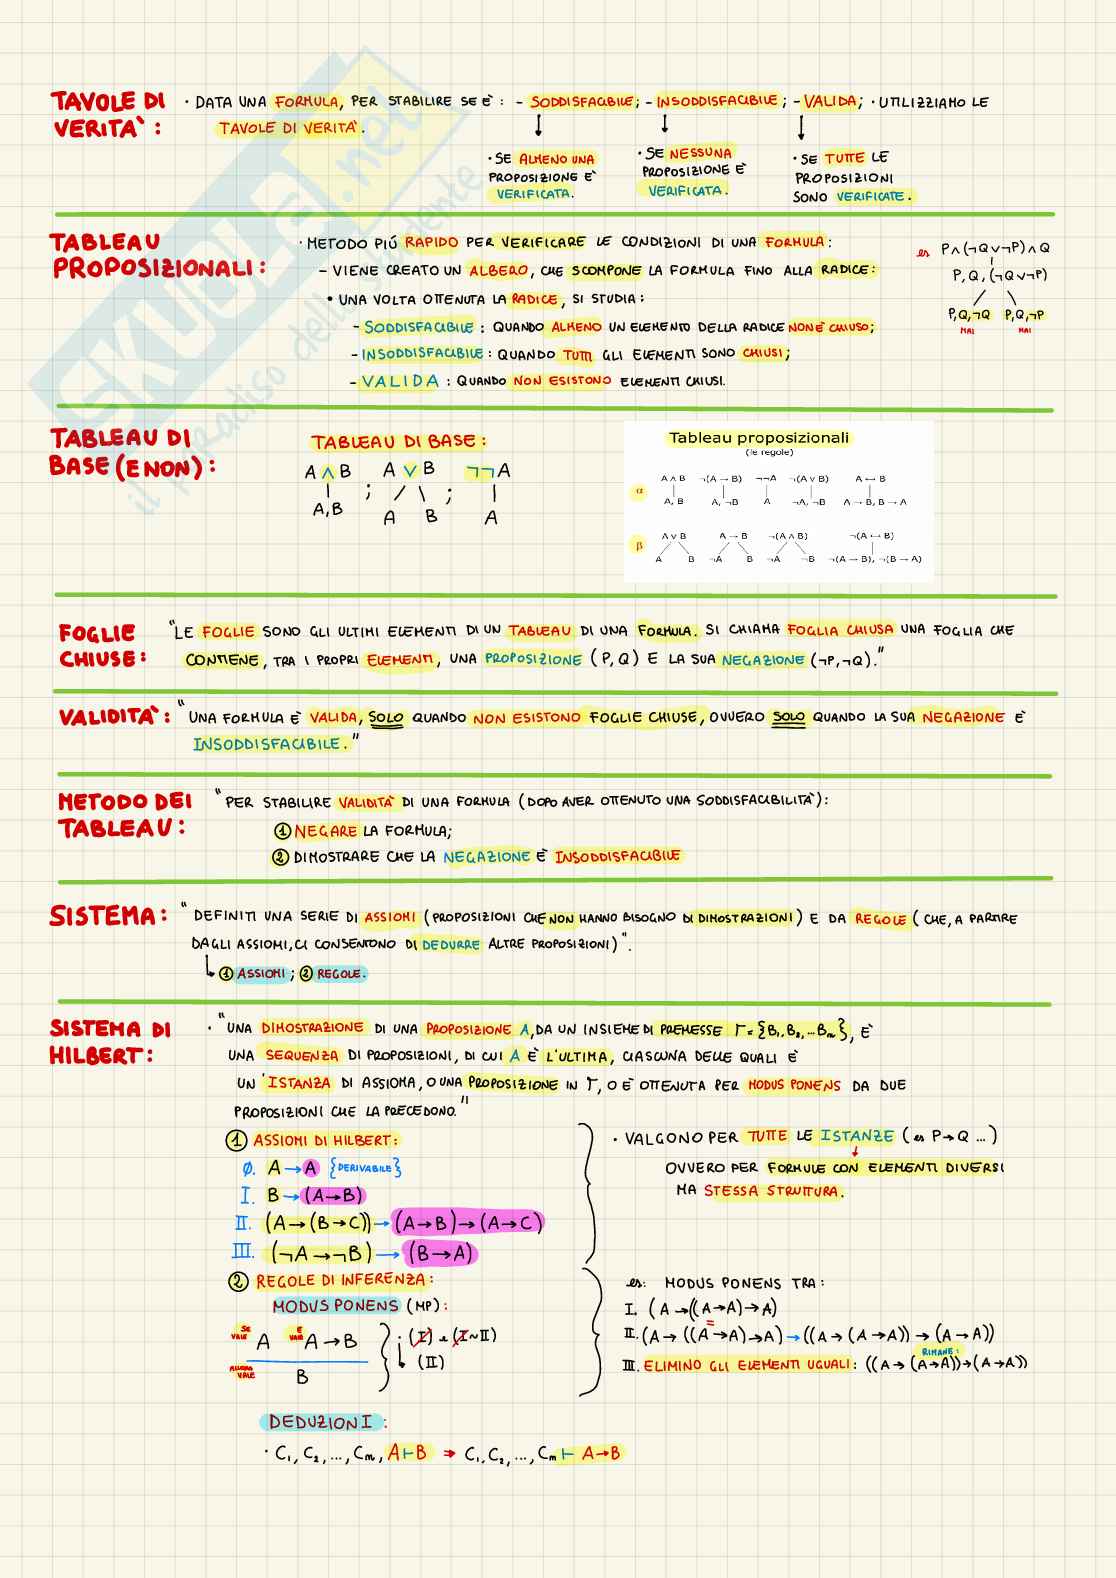 TAVOLE DI VERITA' :
· DATA UNA FORMULA, PER STABILIRE SE È : - SODDISFACIBILE; - INSODDISFACIBILE; - VALIDA; · UTILIZZIAMO LE
TAVOLE DI VERITÀ.
· SE ALMENO UNA
PROPOSIZIONE È
VERIFICATA.
· SE NESSUNA
PROPOSIZIONE È
VERIFICATA.
· SE TUTTE LE
PROPOSIZIONI
SONO VERIFICATE.
TABLEAU
PROPOSIZIONALI:
· METODO PIÚ RAPIDO PER VERIFICARE LE CONDIZIONI DI UNA FORMULA:
- VIENE CREATO UN ALBERO, CHE SCOMPONE LA FORMULA FINO ALLA RADICE:
• UNA VOLTA OTTENUTA LA RADICE, SI STUDIA:
- SODDISFACIBILE : QUANDO ALMENO UN ELEMENTO DELLA RADICE NON È CHIUSO;
- INSODDISFACIBILE : QUANDO TUTTI GLI ELEMENTI SONO CHIUSI;
- VALIDA : QUANDO NON ESISTONO ELEMENTI CHIUSI.
es P∧(¬Q∨¬P)∧Q
P, Q, (¬Q∨¬P)
P,Q,¬Q P,Q,¬P
MAI MAI
TABLEAU DI
BASE (E NON) :
TABLEAU DI BASE :
A ∧ B ; A ∨ B ; ¬¬A
A,B A B A
Tableau proposizionali
(le regole)
α A ∧ B ¬(A → B) ¬¬A ¬(A ∨ B) A ↔ B
A, B A, ¬B A ¬A, ¬B A → B, B → A
β A ∨ B A → B ¬(A ∧ B) ¬(A ↔ B)
A B ¬A B ¬A ¬B ¬(A → B), ¬(B → A)
FOGLIE
CHIUSE:
"LE FOGLIE SONO GLI ULTIMI ELEMENTI DI UN TABLEAU DI UNA FORMULA. SI CHIAMA FOGLIA CHIUSA UNA FOGLIA CHE
CONTIENE, TRA I PROPRI ELEMENTI, UNA PROPOSIZIONE (P, Q) E LA SUA NEGAZIONE (¬P,¬Q)."
VALIDITÀ : "UNA FORMULA È VALIDA, SOLO QUANDO NON ESISTONO FOGLIE CHIUSE, OVVERO SOLO QUANDO LA SUA NEGAZIONE È
INSODDISFACIBILE."
METODO DEI
TABLEAU :
"PER STABILIRE VALIDITÀ DI UNA FORMULA (DOPO AVER OTTENUTO UNA SODDISFACIBILITÀ):
① NEGARE LA FORMULA;
② DIMOSTRARE CHE LA NEGAZIONE È INSODDISFACIBILE
SISTEMA : "DEFINITI UNA SERIE DI ASSIOMI (PROPOSIZIONI CHE NON HANNO BISOGNO DI DIMOSTRAZIONI) E DA REGOLE (CHE, A PARTIRE
DAGLI ASSIOMI, CI CONSENTONO DI DEDURRE ALTRE PROPOSIZIONI)".
① ASSIOMI ; ② REGOLE.
SISTEMA DI
HILBERT:
· "UNA DIMOSTRAZIONE DI UNA PROPOSIZIONE A, DA UN INSIEME DI PREMESSE Γ = {B₁, B₂, ... Bₘ}, È
UNA SEQUENZA DI PROPOSIZIONI, DI CUI A È L'ULTIMA, CIASCUNA DELLE QUALI È
UN'ISTANZA DI ASSIOMA, O UNA PROPOSIZIONE IN Γ, O È OTTENUTA PER MODUS PONENS DA DUE
PROPOSIZIONI CHE LA PRECEDONO."
① ASSIOMI DI HILBERT:
Ø. A → A {DERIVABILE}
I. B → (A→B)
II. (A→(B→C)) → (A→B)→(A→C)
III. (¬A→¬B) → (B→A)
· VALGONO PER TUTTE LE ISTANZE (es P→Q ...)
OVVERO PER FORMULE CON ELEMENTI DIVERSI
MA STESSA STRUTTURA.
② REGOLE DI INFERENZA :
MODUS PONENS (MP):
SE VALE A E VALE A → B
ALLORA VALE B
· (I) e (I~II)
(II)
es: MODUS PONENS TRA:
I. (A→((A→A)→A)
=
II. (A→ ((A→A)→A) → ((A→(A→A))→(A→A))
RIMANE:
III. ELIMINO GLI ELEMENTI UGUALI: ((A→(A→A))→(A→A))
DEDUZIONI :
· C₁, C₂, ..., Cₘ, A⊢B ⇒ C₁, C₂, ..., Cₘ ⊢ A→B
SKUOLA.net
il paradiso dello studente